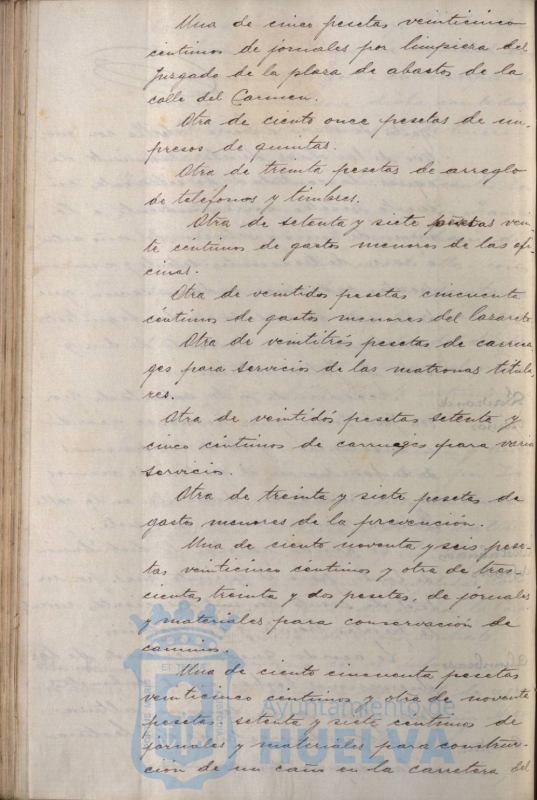 Una de cinco pesetas veinticinco
céntimos de jornales por limpieza del
Juzgado de la plaza de abastos de la
calle del Carmen.
Otra de ciento once pesetas de im-
presos de quintas.
Otra de treinta pesetas de arreglo
de teléfonos y timbres.
Otra de setenta y siete pesetas vein-
te céntimos de gastos menores de las ofi-
cinas.
Otra de veintidos pesetas cincuenta
céntimos de gastos menores del Lazareto
Otra de veintitrés pesetas de carrua-
ges para servicios de las matronas titula-
res.
Otra de veintidós pesetas setenta y
cinco céntimos de carruages para varios
servicios.
Otra de treinta y siete pesetas de
gastos menores de la prevención.
Una de ciento noventa y seis pese-
tas veinticinco céntimos y otra de tres-
cientas treinta y dos pesetas, de jornales
y materiales para conservación de
caminos.
Una de ciento cincuenta pesetas
veinticinco céntimos y otra de noventa
pesetas setenta y siete centimos de
jornales y materiales para construc-
ción de un caño en la carretera del
Ayuntamiento de
HUELVA